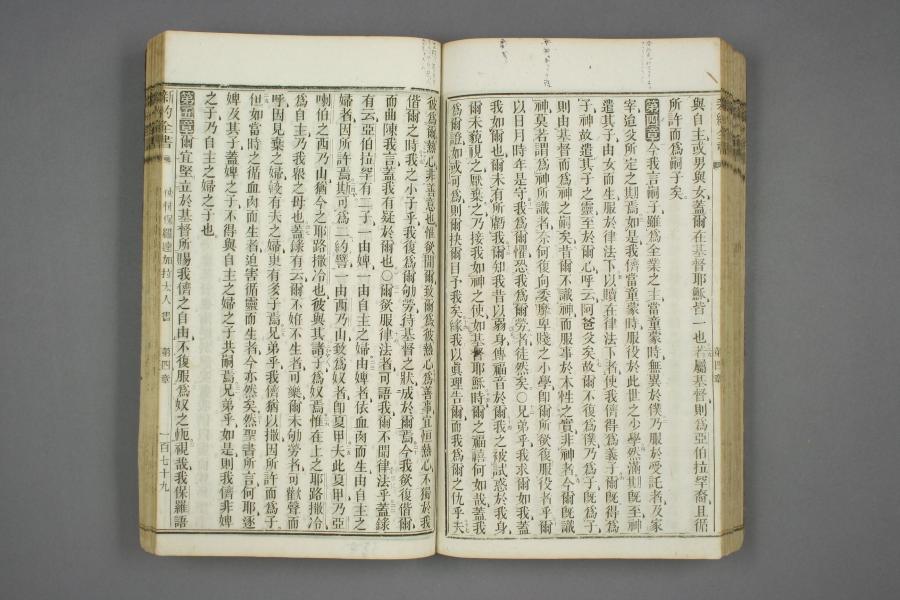 與自主、或男與女、蓋爾在基督耶穌皆一也、若屬基督、則爲亞伯拉罕裔、且循
所許而爲嗣子矣、
第四章 今我言嗣子雖爲全業之主、當童蒙時、無異於僕、乃服於受託者及家
宰、迨父所定之期焉、如是我儕當童蒙時、服役於此世之小學、然滿期既至、神
遣其子、由女而生、服於律法下、以贖在律法下者、使我儕得爲義子、爾既得爲
子、神故遣其子之靈、至於爾心、呼云、阿爸父矣、故爾不復爲僕、乃爲子、既爲子、
則由基督而爲神之嗣矣、昔爾不識神、而服事於本性之實非神者、今爾既識
神、莫若謂爲神所識者、奈何復向委靡卑賤之小學、卽爾所欲復服役者乎、爾
以日月時年是守、我爲爾懼、恐我爲爾勞者、徒然矣、〇兄弟乎、我求爾如我、蓋
我如爾也、爾未有所虧我、爾知我昔以弱身傳福音於爾、我之被試惑於我身、
爾未藐視之、厭棄之、乃接我如神之使、如基督耶穌、時爾之福禧何如哉、蓋我
爲爾證、如或可爲、則爾抉爾目予我矣、緣我以眞理告爾、而我爲爾之仇乎、夫
彼爲爾熱心、非善意也、惟欲閒爾、致爾爲彼熱心、爲善事宜恒熱心、不獨於我
偕爾之時、我之小子乎、我復爲爾劬勞、待基督之狀成於爾焉、今我欲復偕爾、
而曲陳我言、蓋我有疑於爾也、〇爾欲服律法者、可語我、爾不聞律法乎、蓋錄
有云、亞伯拉罕有二子、一由婢、一由自主之婦、由婢者、依血肉而生、由自主之
婦者、因所許焉、此可爲二約譬、一由西乃山、致爲奴者、卽夏甲、夫此夏甲、乃亞
喇伯之西乃山、猶今之耶路撒冷也、彼與其諸子爲奴焉、惟在上之耶路撒冷
爲自主、乃我衆之母也、蓋錄有云、爾不姙不生者、可樂、爾未劬勞者、可歡聲而
呼、因見棄之婦、較有夫之婦、更有多子焉、兄弟乎、我儕猶以撒、因所許而爲子、
但如當時之循血肉而生者、迫害循靈而生者、今亦然矣、然聖書所言何耶、逐
婢及其子、蓋婢之子、不得與自主之婦之子共嗣焉、兄弟乎、如是則我儕非婢
之子、乃自主之婦之子也、
第五章 爾宜堅立於基督所賜我儕之自由、不復服爲奴之軛、視哉、我保羅語
新約全書
使徒保羅達加拉太人書
第四章
一百七十九
第四章